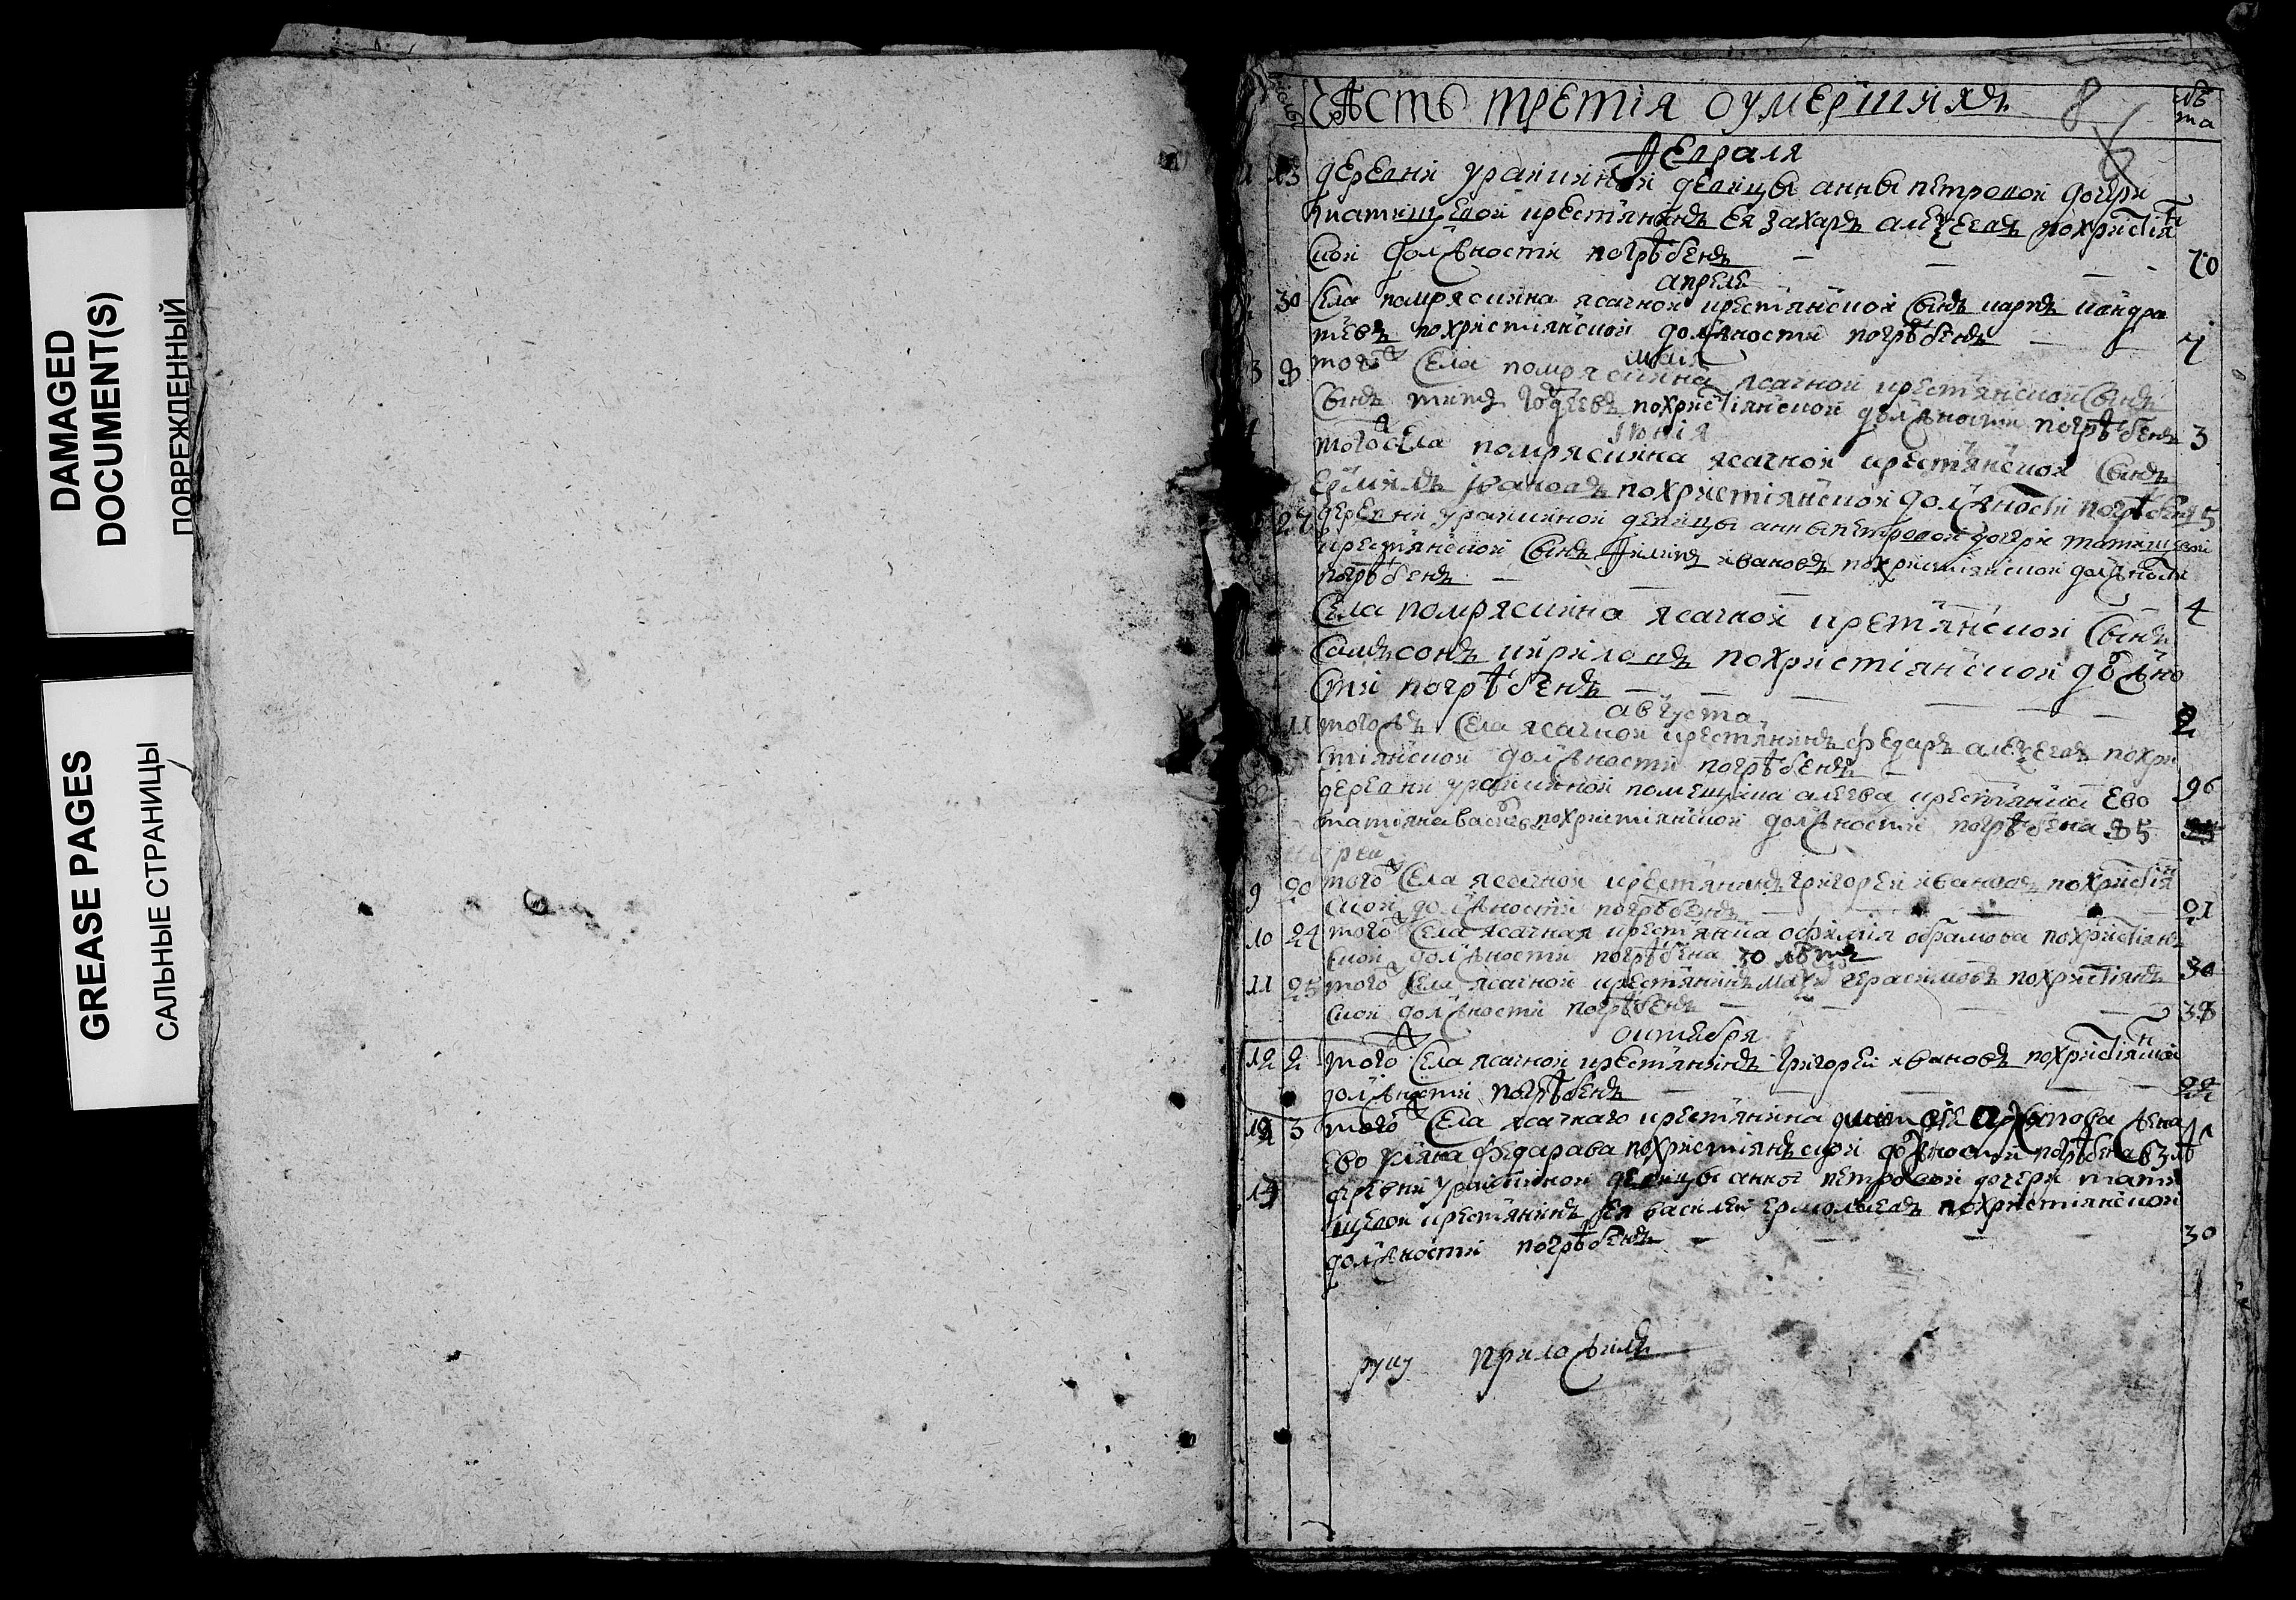 DAMAGED
DOCUMENT(S)
ПОВРЕЖДЕННЫЙ
GREASE PAGES
САЛЬНЫЕ СТРАНИЦЫ
Часть третія оумершихъ 8 лѣ
та
февраля
1 13 деревни ураикиной девицы анны петровой дочери
татищевой крестьянинъ ея захаръ алеѯеевъ похристіян
ской должности погрѣбенъ 70
апреля
30 села помряскина ясачной крестьянской сынъ карпъ кондра
тьевъ похристиянской должности погрѣбенъ 7
мая
3 8 тогож села помряскина ясачной крестьянской сынъ
сынъ титъ похристіянской должности погрѣбенъ 3
іюнія
4 тогож села помряскина ясачной крестьянской сынъ
ивановъ похристиянской должности погрѣбенъ 5
27 деревни ураикиной девицы анны петровой дочери татищевой
крестьянской сынъ филипъ ивановъ похристиянской должности
погрѣбенъ
села помряскина ясачной крестьянской сынъ 4
самъсонъ кириловъ похристиянской должно
сти погрѣбенъ
августа 2
11 тогожъ села ясачной крестьянинъ федаръ алеѯеевъ похри
стиянской должности погрѣбенъ
деревни ураикиной помещика крестьянина ево 96
татияна похристиянской должности погрѣбена 85
9 20 тогож села ясачной крестьянинъ григорей ивановъ похристіян
ской должности погрѣбенъ 21
10 24 тогож села ясачная крестьянка офимія обрамова похристіянъ
ской должности погрѣбена 30 лѣтъ
11 25 тогож села ясачной крестьянинъ герасимовъ похристіянъ 30
ской должности погрѣбенъ 38
октебря
12 2 тогож села ясачной крестьянинъ григорей ивановъ похристіянской
должности погрѣбенъ 22
3 тогож села ясачнаго крестьянина жена
ево уляна федарава похристиянъской должности погрѣбена
14 деревни ураикиной девицы анны петровой дочери тати
щевой крестьянинъ ея василей ермолаевъ похристиянской
должности погрѣбенъ 30
руку приложилъ